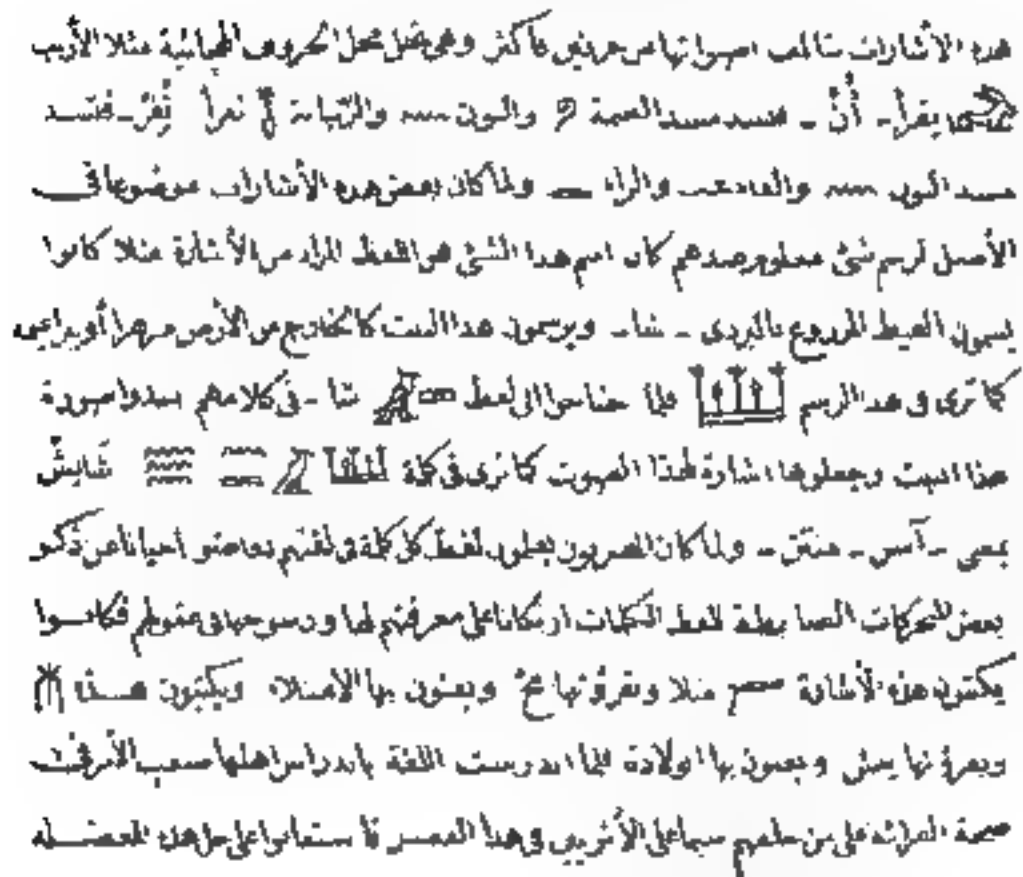 هذه الأشارات تتألف اصواتها من حرفين فأكثر وهي تحل محل الحروف الهجائية مثلا الأرنب
يقرأ - أُنّ - فتسد مسد الضمة والنون والرّبابة تقرأ نُفِرْ - فتسد
مسد النون والفاء والراء ولما كان بعض هذه الأشارات موضوعا في
الأصل لرسم شئ معلوم عندهم كان اسم هذا الشئ هو اللفظ المراد من الأشارة مثلا كانوا
يسمون الغيط المزروع بالبردى - شا - ويرسمون هذا النبت كالخارج من الأرض مزهرا أو براعيم
كما ترى في هذا الرسم فلما احتاجوا الى لفظ شا - في كلامهم اخذوا صورة
هذا النبت وجعلوها اشارة لهذا الصوت كما ترى في كلة شايش
بمعنى - آسن - منتن - ولما كان المصريون يعلمون لفظ كل كلة في لغتهم تغاضوا احيانا عن ذكر
بعض الحركات الضابطة للفظ الكلمات ارتكانا على معرفتهم لها ورسوخها في عقولهم فكانوا
يكتبون هذه الأشارة مثلا ويقرؤنها مح ويعنون بها الامتلاء ويكتبون هذه
ويقرؤنها مس ويعنون بها الولادة فلما اندرست اللغة باندراس اهلها صعب الأمر في
صحة القرائة على من خلفهم سيما على الأثريين في هذا العصر فاستعانوا على حل هذه المعضلة